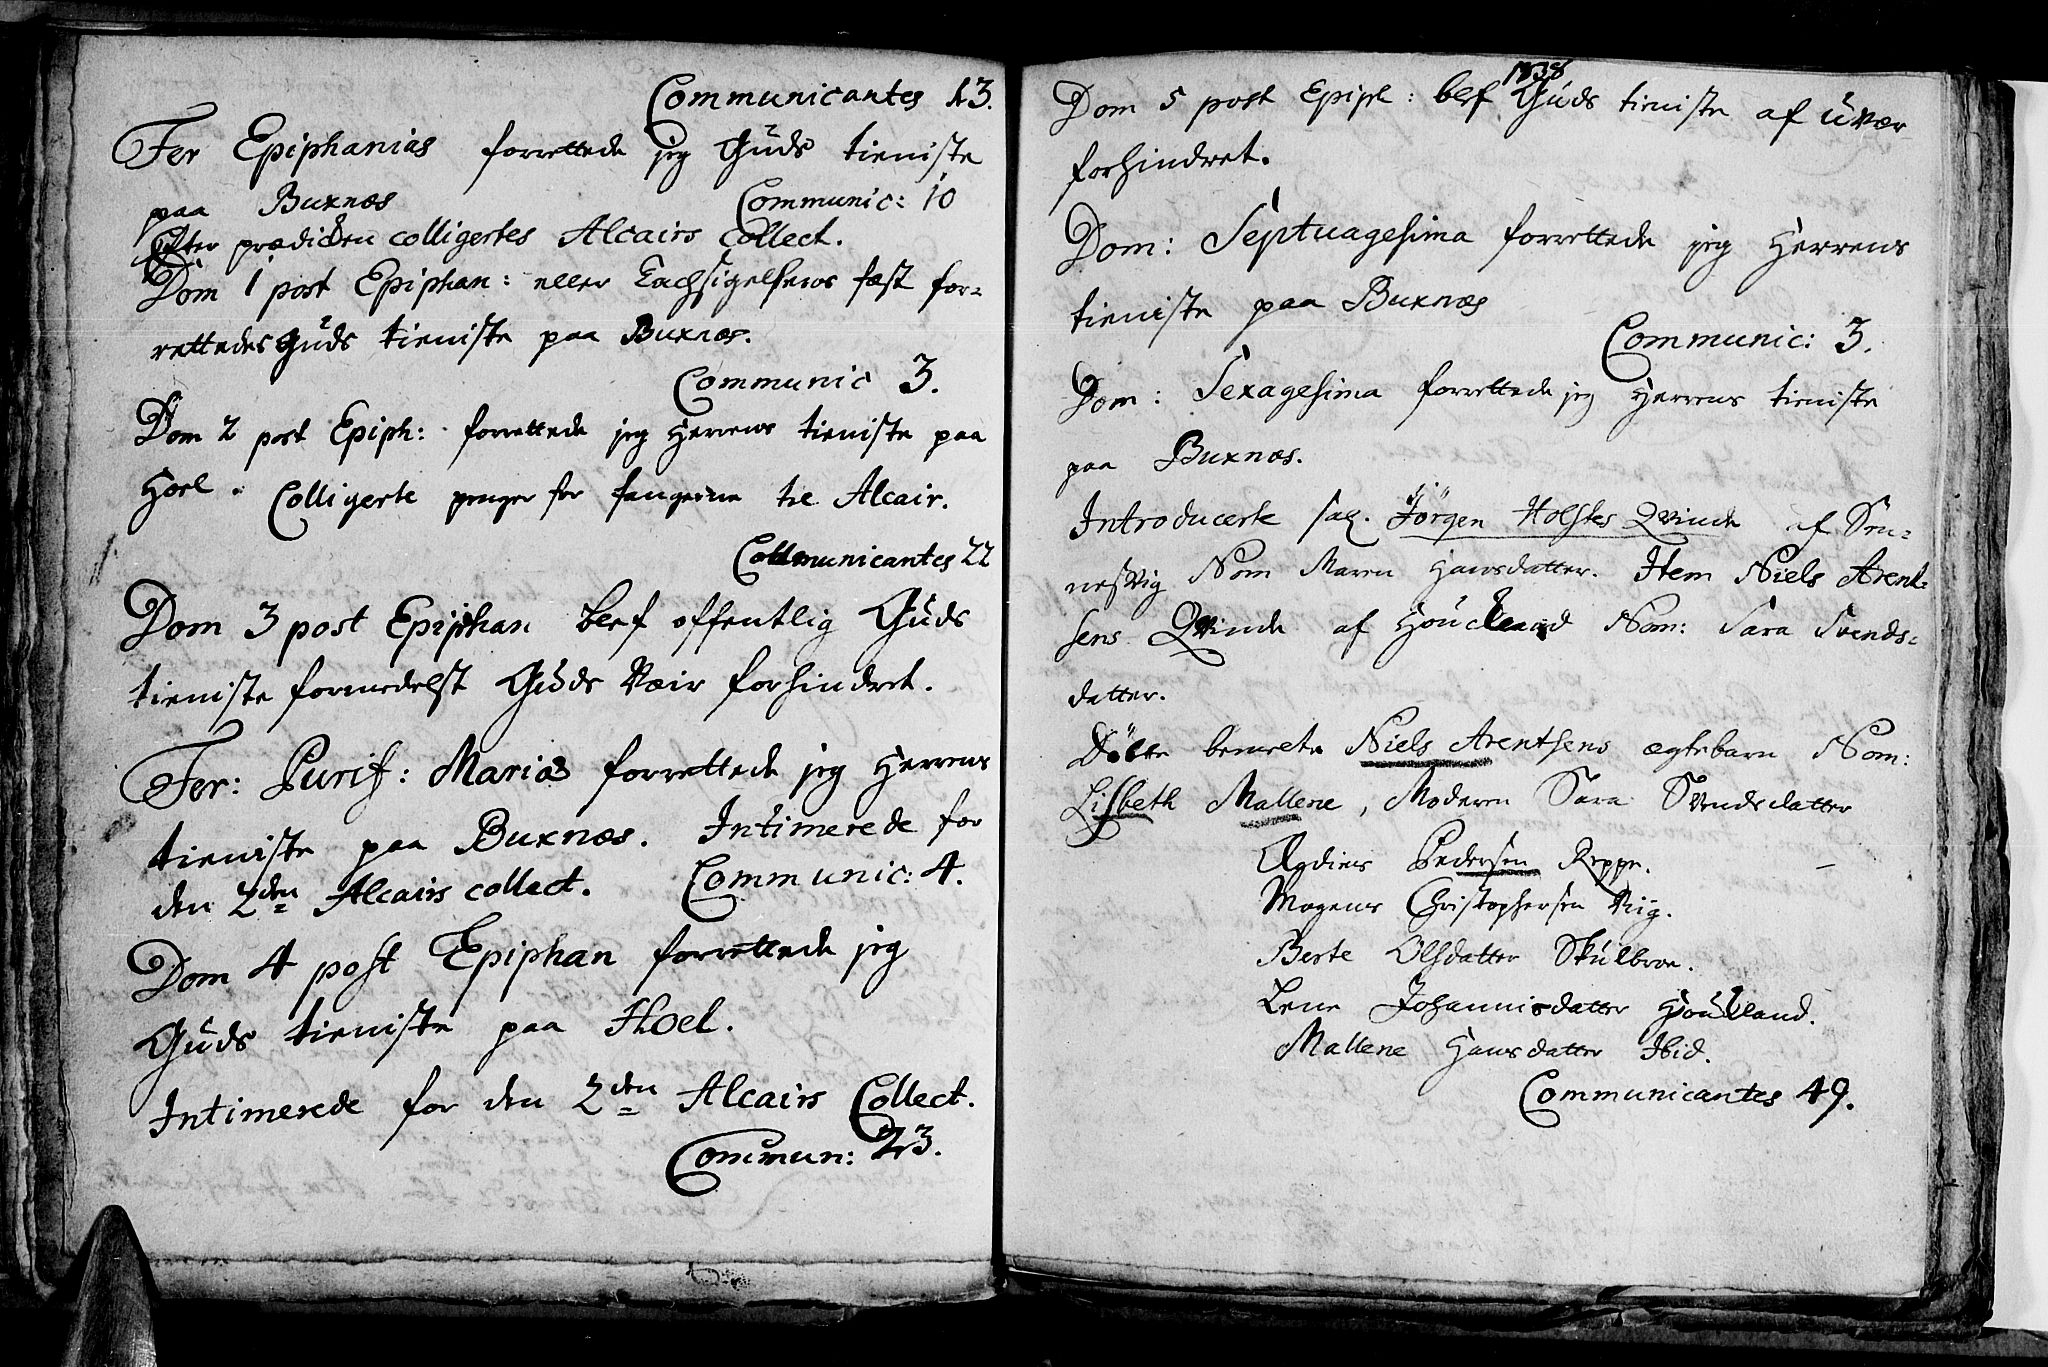 Communicantes 23.
Fer Epiphanias forrettede jeg Guds tieniste
paa Buxnæs Communic: 10
Efter prædicken colligertes Alcairs Collect.
Dom 1 post Epiphan: eller Tachsigelsens fæst for-
rettedes Guds tieniste paa Buxnæs.
Communic 3.
Dom 2 post Epiph: forrettede jeg Herrens tieniste paa
Hoel. Colligerte penger for fangerne til Alcair.
Communicantes 22
Dom 3 post Epiphan blef offentlig Guds
tieniste formedelst Guds Væir forhindret.
Fer: Purif: Mariæ forrettede jeg Herrens
tieniste paa Buxnæs. Intimerede for
den 2den Alcairs collect. Communic: 4.
Dom 4 post Epiphan forrettede jeg
Guds tieniste paa Hoel.
Intimerede for den 2den Alcairs Collect.
Commun: 23.
1738
Dom 5 post Epiph: blef Guds tieniste af uvær
forhindret.
Dom: Septuagesima forrettede jeg Herrens
tieniste paa Buxnæs
Communic: 3.
Dom: Sexagesima forrettede jeg Herrens tieniste
paa Buxnæs.
Introducerte sal. Jörgen Holstes Qvinde af Sen-
nesvig Nom Maren Hansdatter. Item Niels Arent-
sens Qvinde af Houckland Nom: Sara Svends-
datter.
Döbte bemelte Niels Arentsens ægtebarn Nom:
Lisbeth Mallene, Moderen Sara Svendsdatter
Pedersen Reppe.
Mogens Christophersen Viig.
Berte Olsdatter Skulbroe.
Lene Johannisdatter Houckland.
Mallene Hansdatter Ibid.
Communicantes 49.